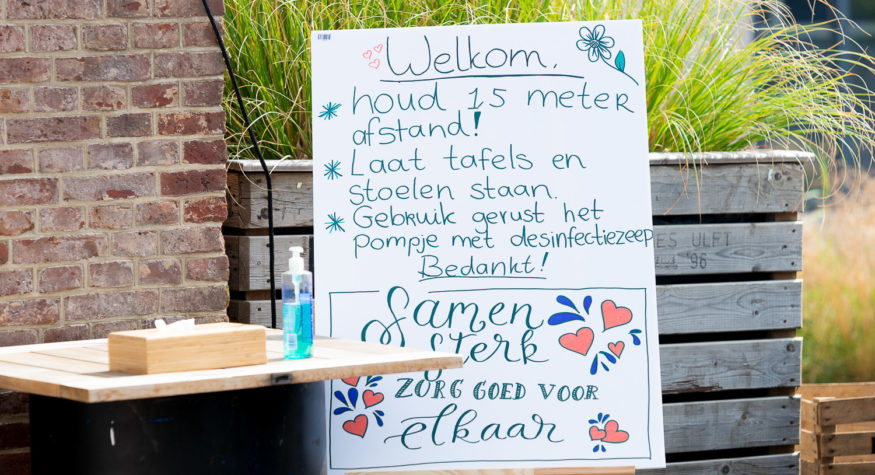 Welkom,
houd 15 meter
afstand!
Laat tafels en
stoelen staan.
Gebruik gerust het
pompje met desinfectiezeep
Bedankt!
Samen
Sterk
ZORG GOED VOOR
elkaar
ES ULFT
'96